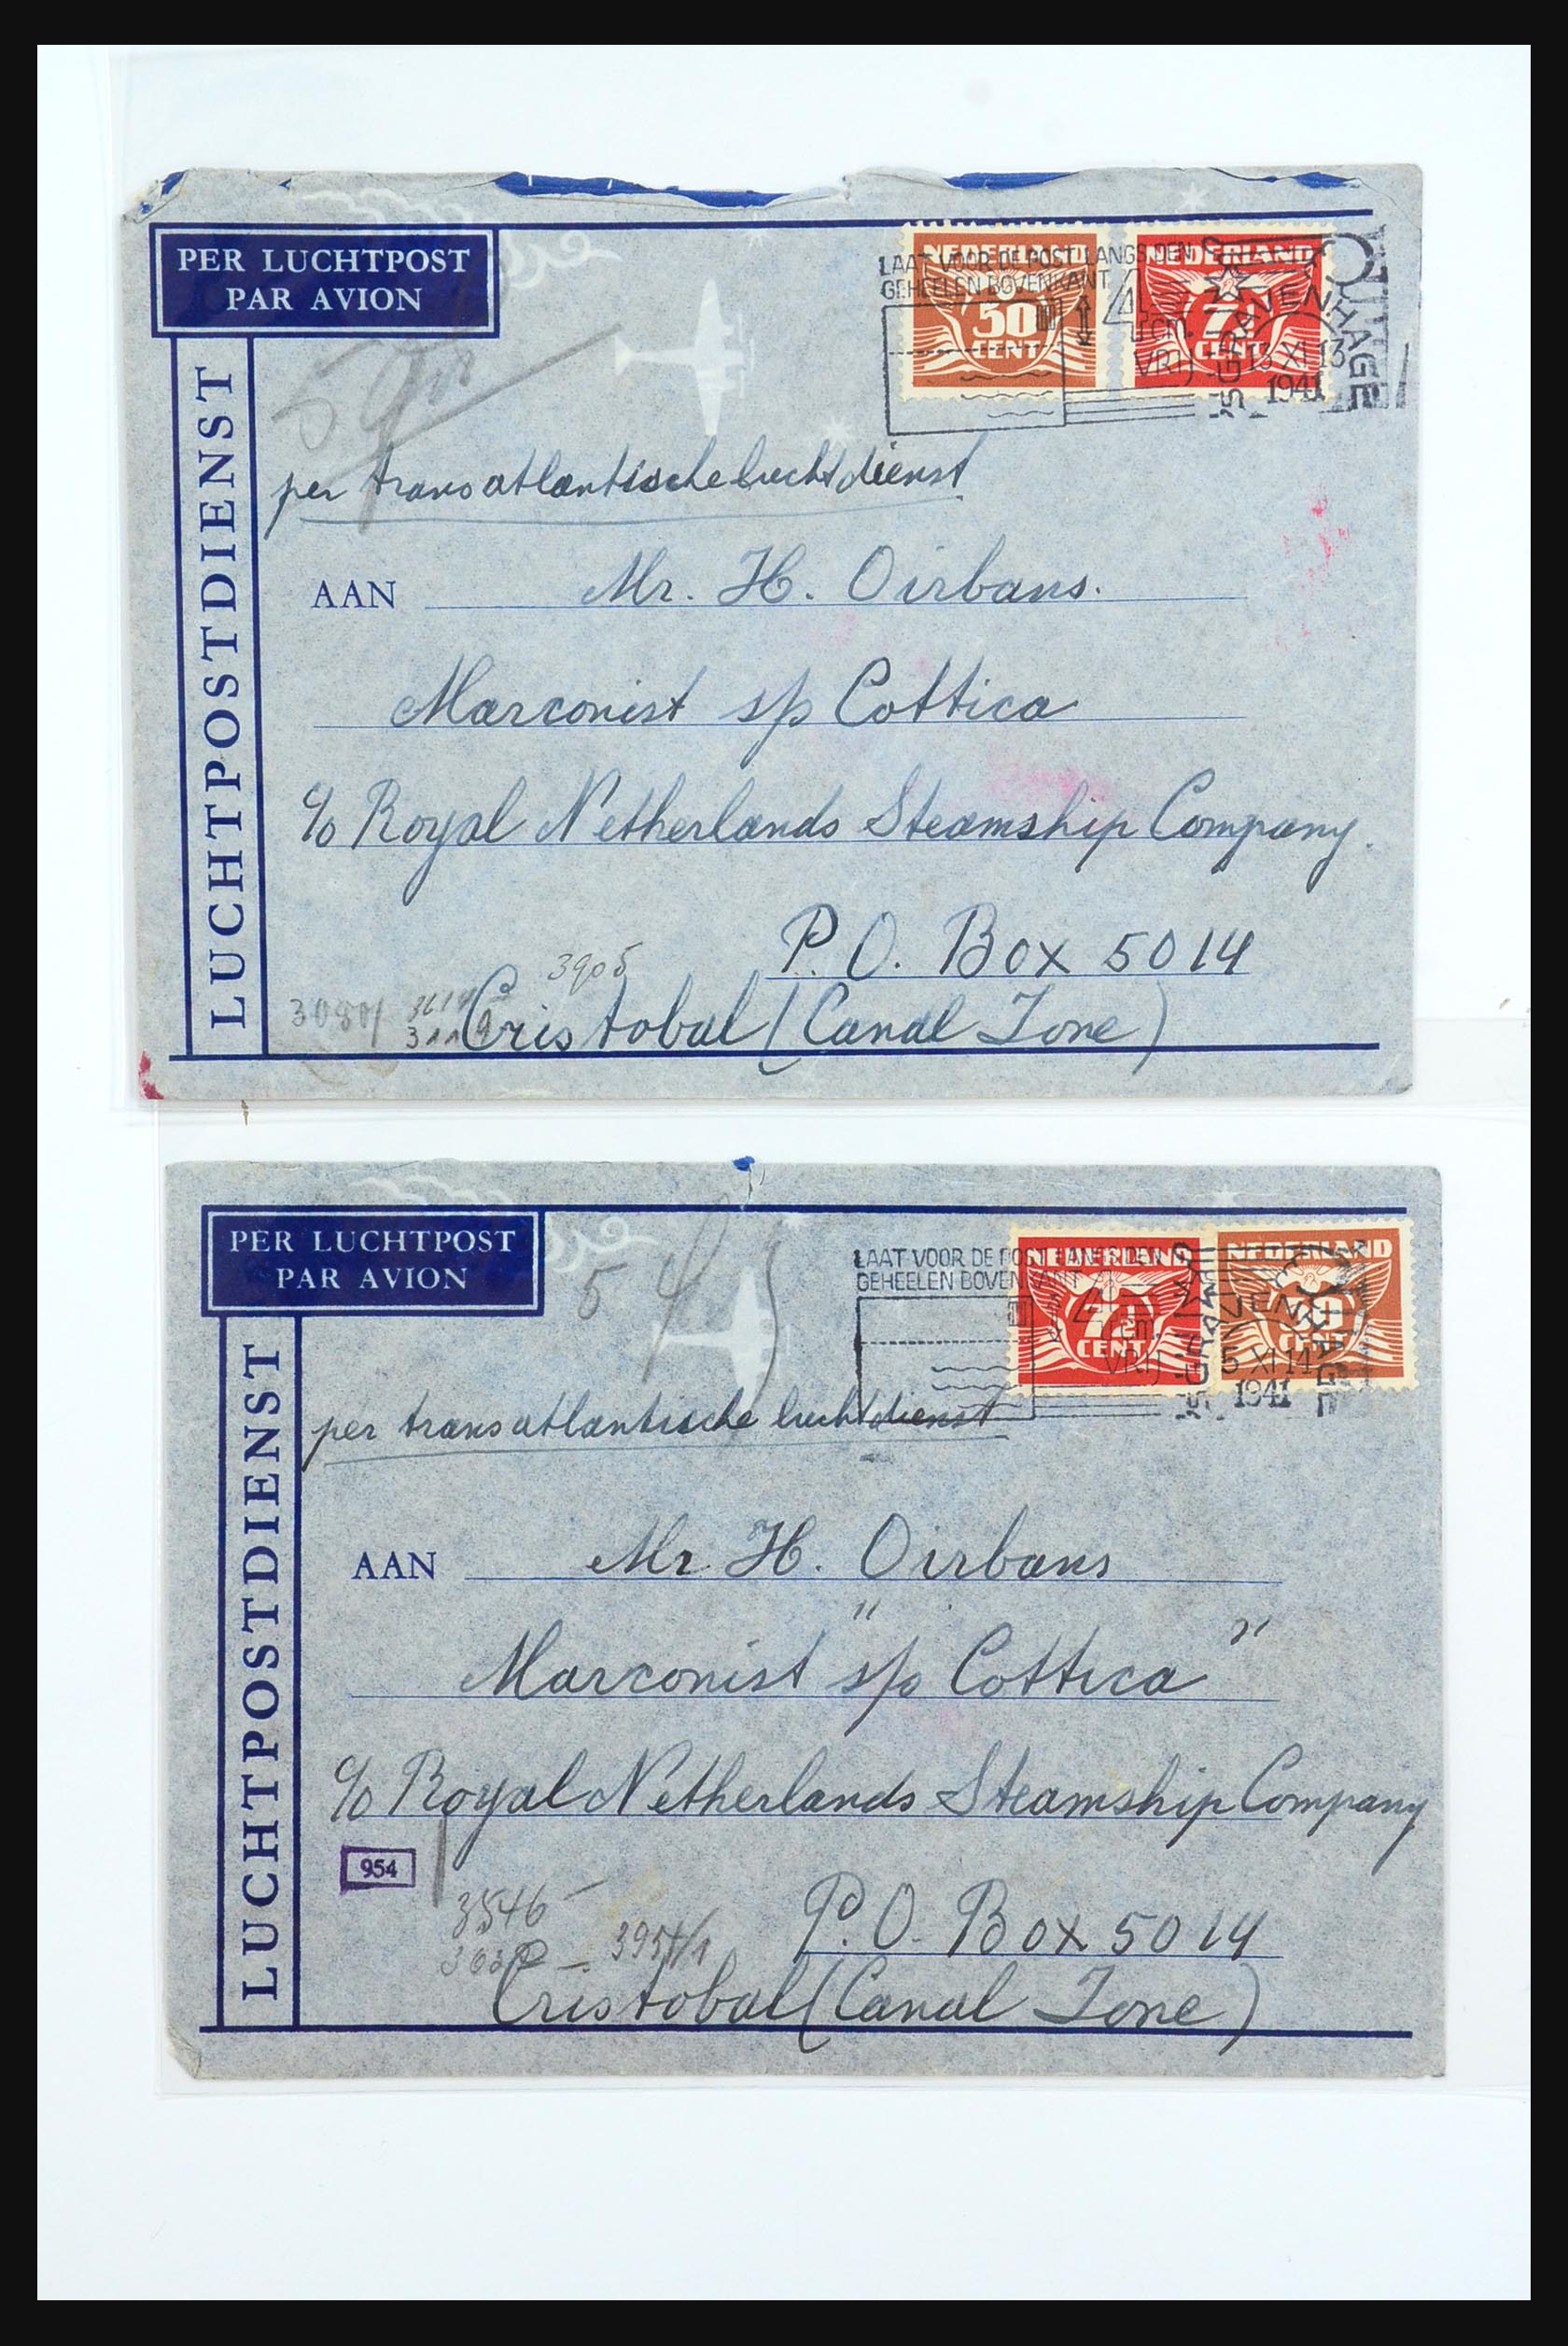 PER LUCHTPOST
PAR AVION
LUCHTPOSTDIENST
NEDERLAND
50
CENT
NEDERLAND
7½
CENT
LAAT VOOR DE POST LANGS DEN
GEHEELEN BOVENKANT
4 cm.
VRIJ
'S GRAVENHAGE
13 XI 13
1941
per transatlantische luchtdienst
AAN Mr. H. Oirbans.
Marconist s/s Cottica
c/o Royal Netherlands Steamship Company.
P.O. Box 5014
3905
Cristobal (Canal Zone)
PER LUCHTPOST
PAR AVION
LUCHTPOSTDIENST
5
NEDERLAND
7½
CENT
NEDERLAND
50
CENT
LAAT VOOR DE POST LANGS DEN
GEHEELEN BOVENKANT
4 cm.
VRIJ
'S GRAVENHAGE
5 XI 14
1941
per transatlantische luchtdienst
AAN Mr H. Oirbans
Marconist s/s "Cottica"
c/o Royal Netherlands Steamship Company
954
3546 -
P.O. Box 5014
Cristobal (Canal Zone)